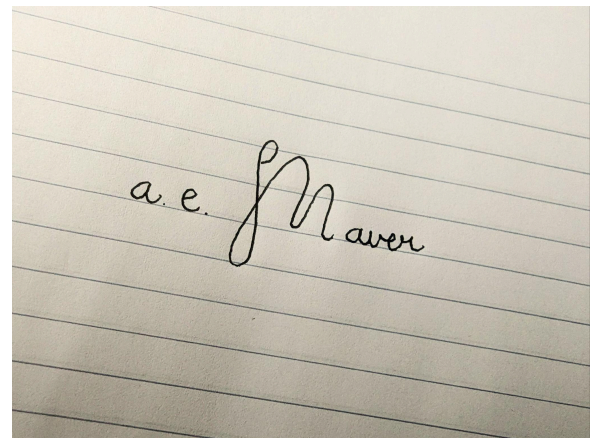 a. e. Maver